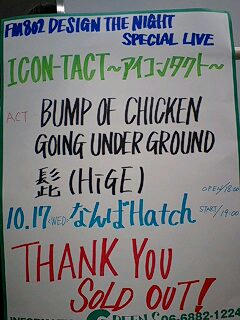 FM802 DESIGN THE NIGHT
SPECIAL LIVE
ICON-TACT〜アイコンタクト〜
ACT BUMP OF CHICKEN
GOING UNDER GROUND
髭 (HiGE)
OPEN/18:00
10.17<WED> なんばHatch START/19:00
THANK YOU
SOLD OUT!
INFORMATION GREENS 06-6882-1224